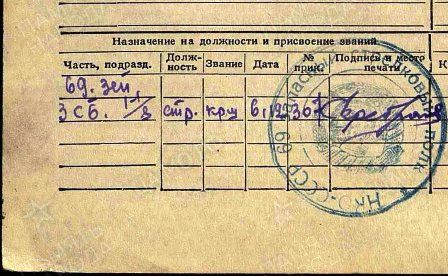 Назначение на должности и присвоение званий
Часть, подразд. Долж-ность Звание Дата № прик. Подпись и место печати
69. зсп,
3 сб. стр. крш 6.12 367
69 запасный стрелковый полк НКО-СССР